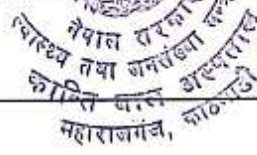 नेपाल सरकार
स्वास्थ्य तथा जनसंख्या
कान्ति बाल अस्पताल
महाराजगंज,